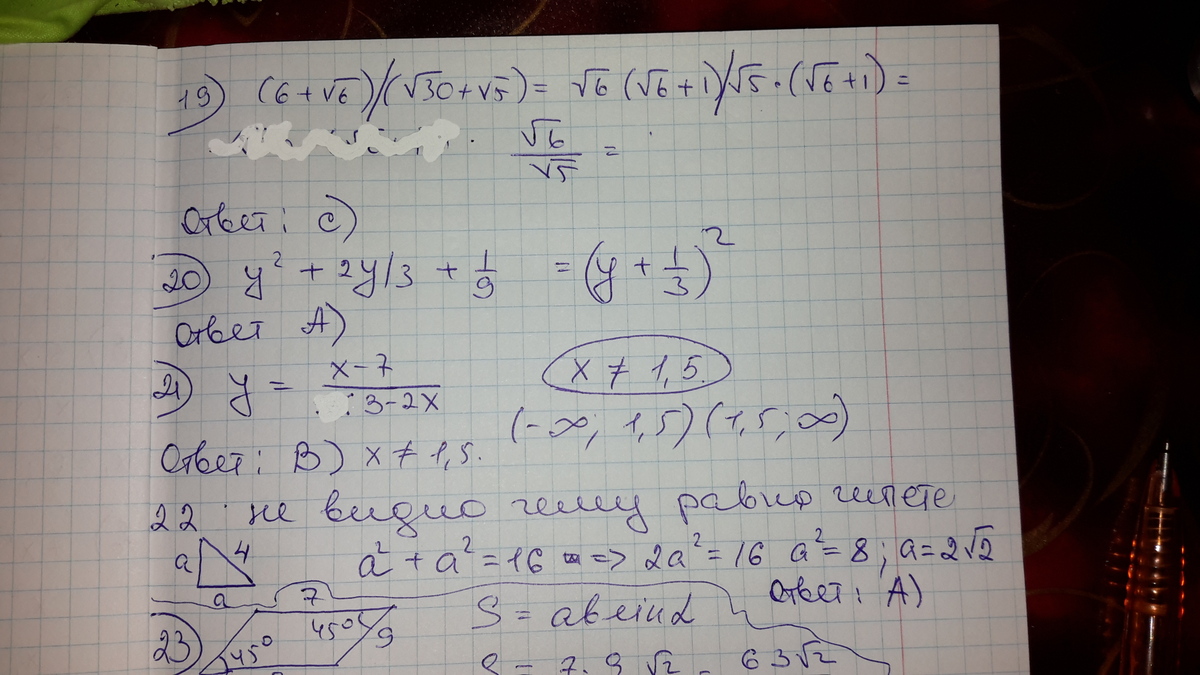 19) (6+√6)/(√30+√5) = √6 (√6+1)/√5·(√6+1) =
√6/√5 =
Ответ: С)
20) y² + 2y/3 + 1/9 = (y + 1/3)²
Ответ А)
21) y = x-7 / 3-2x x ≠ 1,5.
(-∞; 1,5) (1,5; ∞)
Ответ: В) x ≠ 1,5.
22 не видно чему равно гипете
a 4 a a² + a² = 16 => 2a² = 16 a² = 8; a = 2√2
Ответ: А)
23) 7 45° 45° 9 S = ab sin α
7·9 √2 63√2